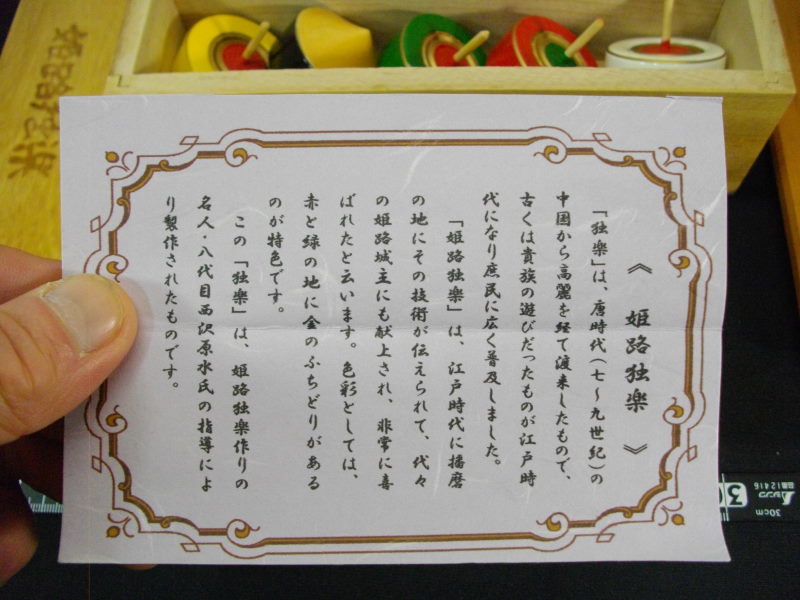 《 姫路独楽 》
「独楽」は、唐時代(七～九世紀)の
中国から高麗を経て渡来したもので、
古くは貴族の遊びだったものが江戸時
代になり庶民に広く普及しました。
「姫路独楽」は、江戸時代に播磨
の地にその技術が伝えられて、代々
の姫路城主にも献上され、非常に喜
ばれたと云います。色彩としては、
赤と緑の地に金のふちどりがある
のが特色です。
この「独楽」は、姫路独楽作りの
名人・八代目西沢原水氏の指導によ
り製作されたものです。
姫路独楽
30cm
3
12416